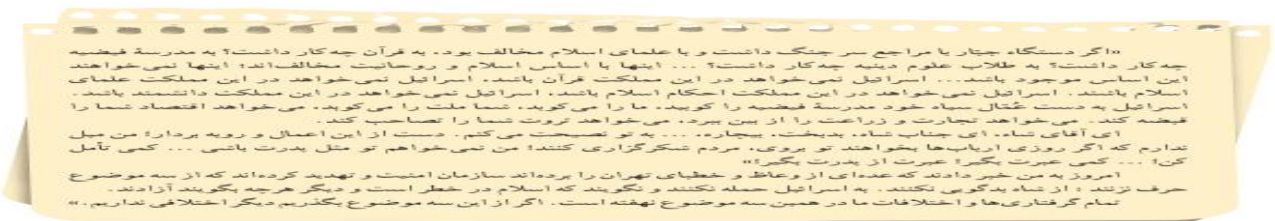 «اگر دستگاه جبّار با مراجع سر جنگ داشت و با علمای اسلام مخالف بود، به قرآن چه کار داشت؟ به مدرسهٔ فیضیه
چه کار داشت؟ به طلاب علوم دینیه چه کار داشت؟ ... اینها با اساس اسلام و روحانیت مخالف‌اند؛ اینها نمی‌خواهند
این اساس موجود باشد... اسرائیل نمی‌خواهد در این مملکت قرآن باشد، اسرائیل نمی‌خواهد در این مملکت علمای
اسلام باشند. اسرائیل نمی‌خواهد در این مملکت احکام اسلام باشد، اسرائیل نمی‌خواهد در این مملکت دانشمند باشد.
اسرائیل به دست عُمّال سیاه خود مدرسهٔ فیضیه را کوبید، ما را می‌کوبد، شما ملت را می‌کوبد، می‌خواهد اقتصاد شما را
قبضه کند. می‌خواهد تجارت و زراعت را از بین ببرد، می‌خواهد ثروت شما را تصاحب کند.
ای آقای شاه، ای جناب شاه، بدبخت، بیچاره، ... به تو نصیحت می‌کنم. دست از این اعمال و رویه بردار؛ من میل
ندارم که اگر روزی ارباب‌ها بخواهند تو بروی، مردم شکرگزاری کنند؛ من نمی‌خواهم تو مثل پدرت باشی ... کمی تأمل
کن؛ ... کمی عبرت بگیر؛ عبرت از پدرت بگیر؛»
امروز به من خبر دادند که عده‌ای از وعاظ و خطبای تهران را برده‌اند سازمان امنیت و تهدید کرده‌اند که از سه موضوع
حرف نزنند : از شاه بدگویی نکنند. به اسرائیل حمله نکنند و نگویند که اسلام در خطر است و دیگر هرچه بگویند آزادند.
تمام گرفتاری‌ها و اختلافات ما در همین سه موضوع نهفته است. اگر از این سه موضوع بگذریم دیگر اختلافی نداریم.»